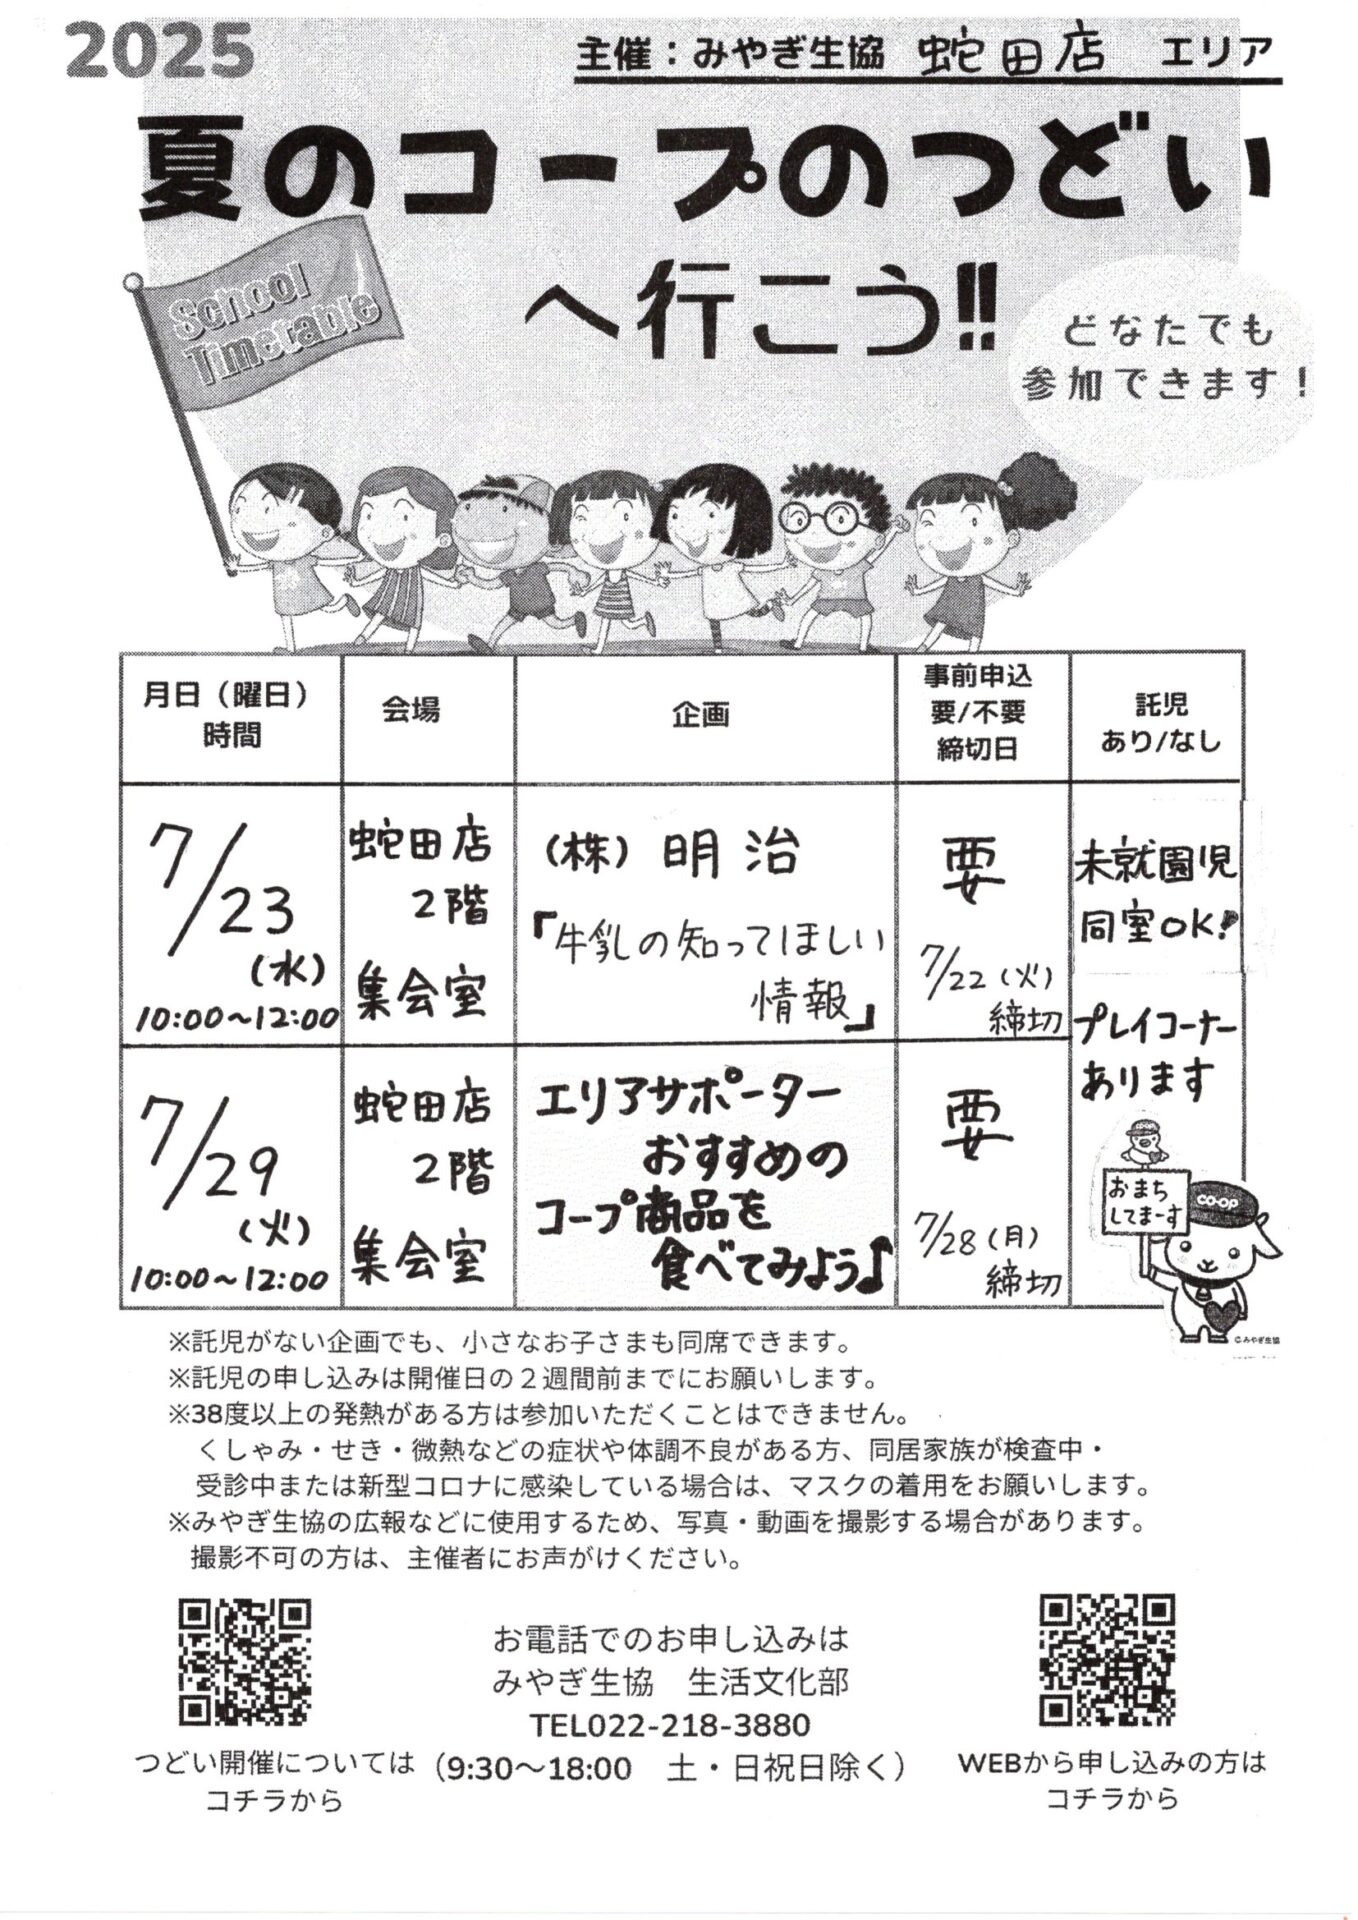 2025
主催：みやぎ生協 蛇田店 エリア
夏のコープのつどい
へ行こう!!
School
Timetable
どなたでも
参加できます！
月日（曜日）
時間
会場
企画
事前申込
要/不要
締切日
託児
あり/なし
7/23
(水)
10:00～12:00
蛇田店
2階
集会室
(株) 明治
「牛乳の知ってほしい
情報」
要
7/22 (火)
締切
未就園児
同室OK!
プレイコーナー
あります
7/29
(火)
10:00～12:00
蛇田店
2階
集会室
エリアサポーター
おすすめの
コープ商品を
食べてみよう♪
要
7/28 (月)
締切
おまち
してまーす
CO-OP
©みやぎ生協
※託児がない企画でも、小さなお子さまも同席できます。
※託児の申し込みは開催日の２週間前までにお願いします。
※38度以上の発熱がある方は参加いただくことはできません。
くしゃみ・せき・微熱などの症状や体調不良がある方、同居家族が検査中・
受診中または新型コロナに感染している場合は、マスクの着用をお願いします。
※みやぎ生協の広報などに使用するため、写真・動画を撮影する場合があります。
撮影不可の方は、主催者にお声がけください。
お電話でのお申し込みは
みやぎ生協　生活文化部
TEL022-218-3880
（9:30～18:00　土・日祝日除く）
つどい開催については
コチラから
WEBから申し込みの方は
コチラから